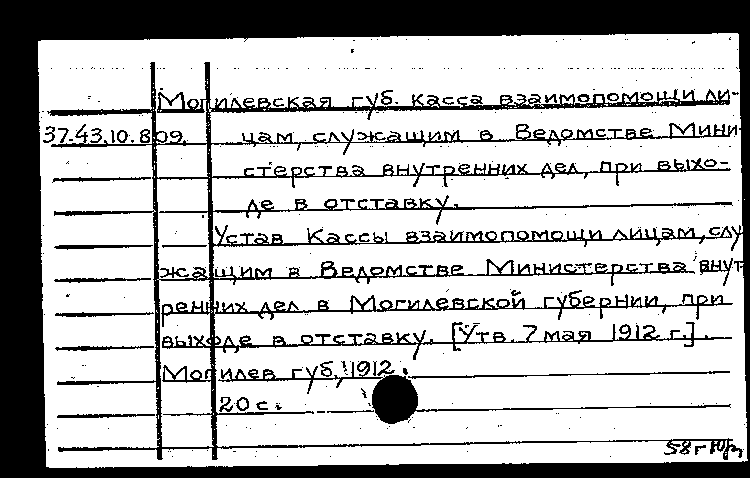 Могилевская губ. касса взаимопомощи ли-
37.43.10.809. цам, служащим в Ведомстве Мини-
стерства внутренних дел, при выхо-
де в отставку.
Устав Кассы взаимопомощи лицам, слу
жащим в Ведомстве Министерства внут
ренних дел в Могилевской губернии, при
выходе в отставку. [Утв. 7 мая 1912 г.].
Могилев губ., 1912.
20 с.
58 г